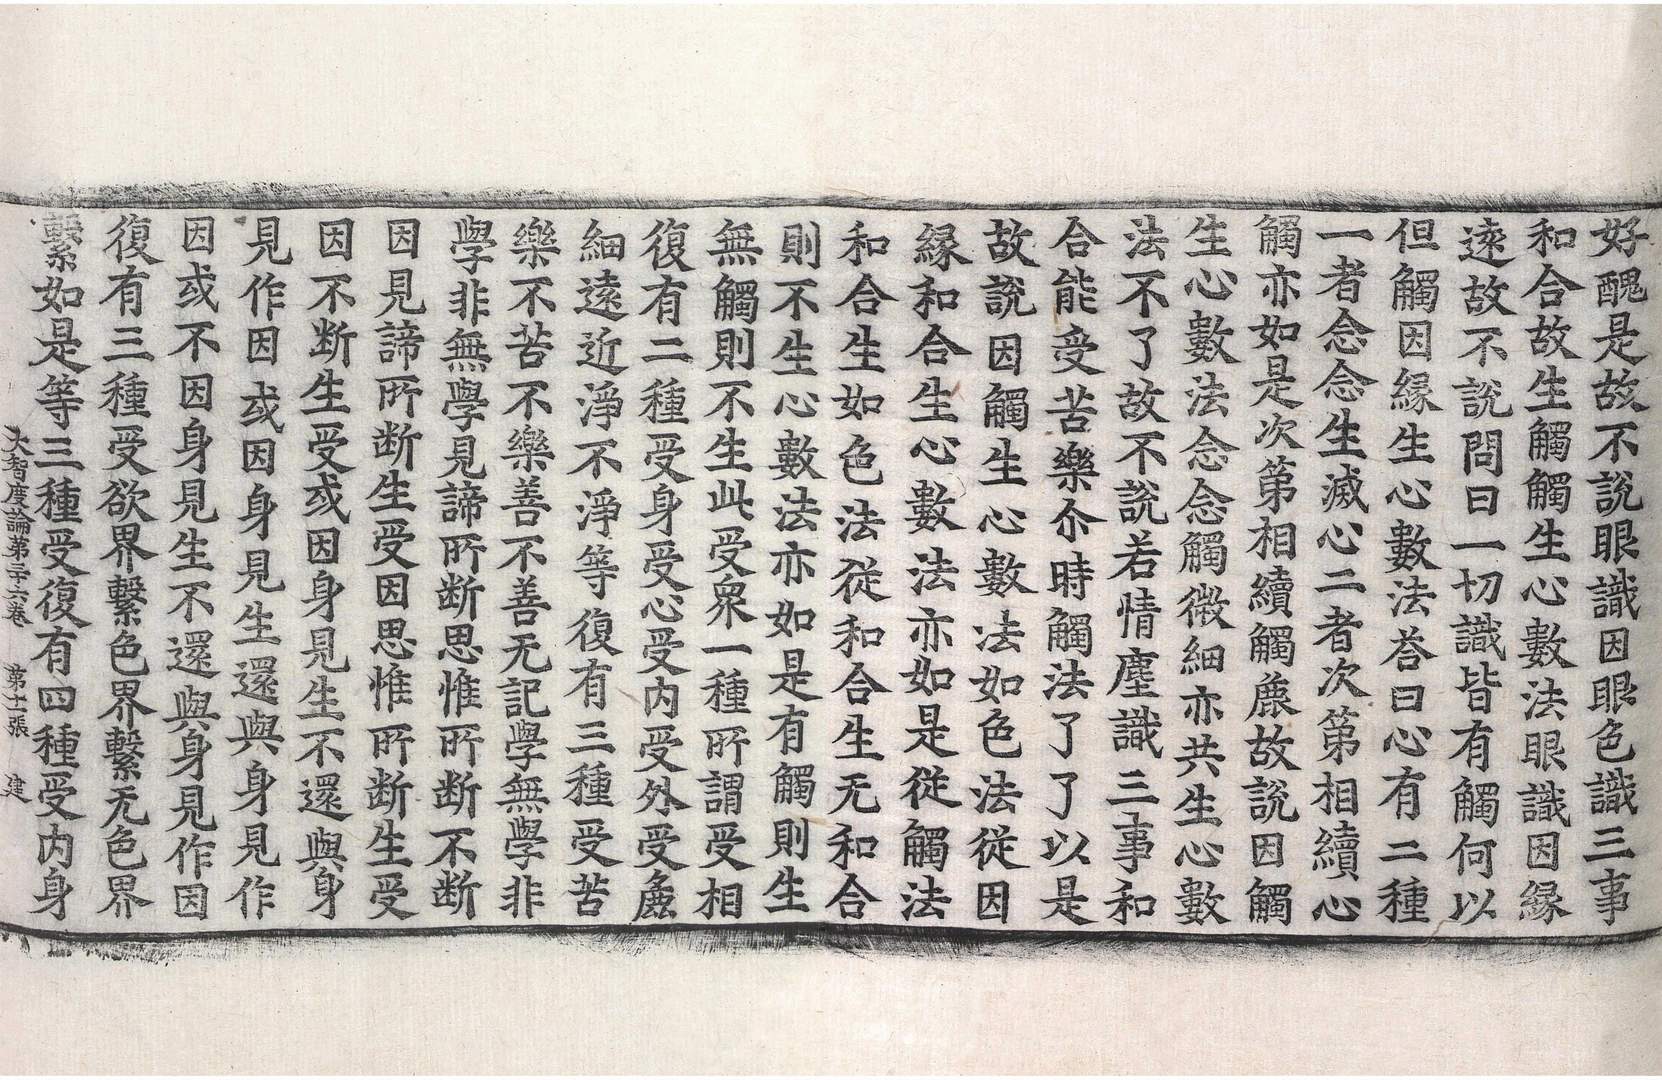 好醜是故不說眼識因眼色識三事
和合故生觸觸生心數法眼識因緣
遠故不說問曰一切識皆有觸何以
但觸因緣生心數法荅曰心有二種
一者念念生滅心二者次第相續心
觸亦如是次第相續觸麁故說因觸
生心數法念念觸微細亦共生心數
法不了故不說若情塵識三事和
合能受苦樂尒時觸法了了以是
故說因觸生心數法如色法從因
緣和合生心數法亦如是從觸法
和合生如色法從和合生无和合
則不生心數法亦如是有觸則生
無觸則不生此受衆一種所謂受相
復有二種受身受心受内受外受麁
細遠近淨不淨等復有三種受苦
樂不苦不樂善不善无記學無學非
學非無學見諦所断思惟所断不断
因見諦所断生受因思惟所断生受
因不断生受或因身見生不還與身
見作因或因身見生還與身見作
因或不因身見生不還與身見作因
復有三種受欲界繫色界繫无色界
繫如是等三種受復有四種受内身
大智度論第三十六卷 第十一張 建